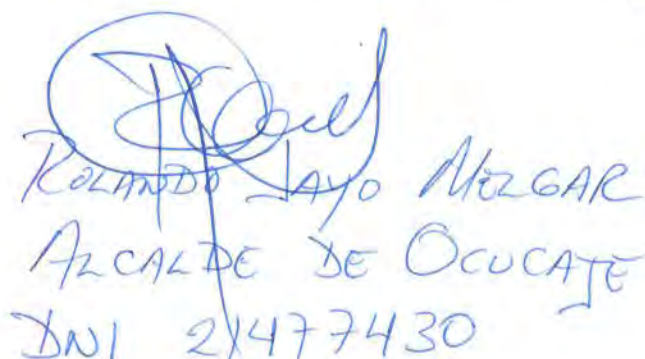 ROLANDO JAYO MELGAR
ALCALDE DE OCUCAJE
DNI 21477430